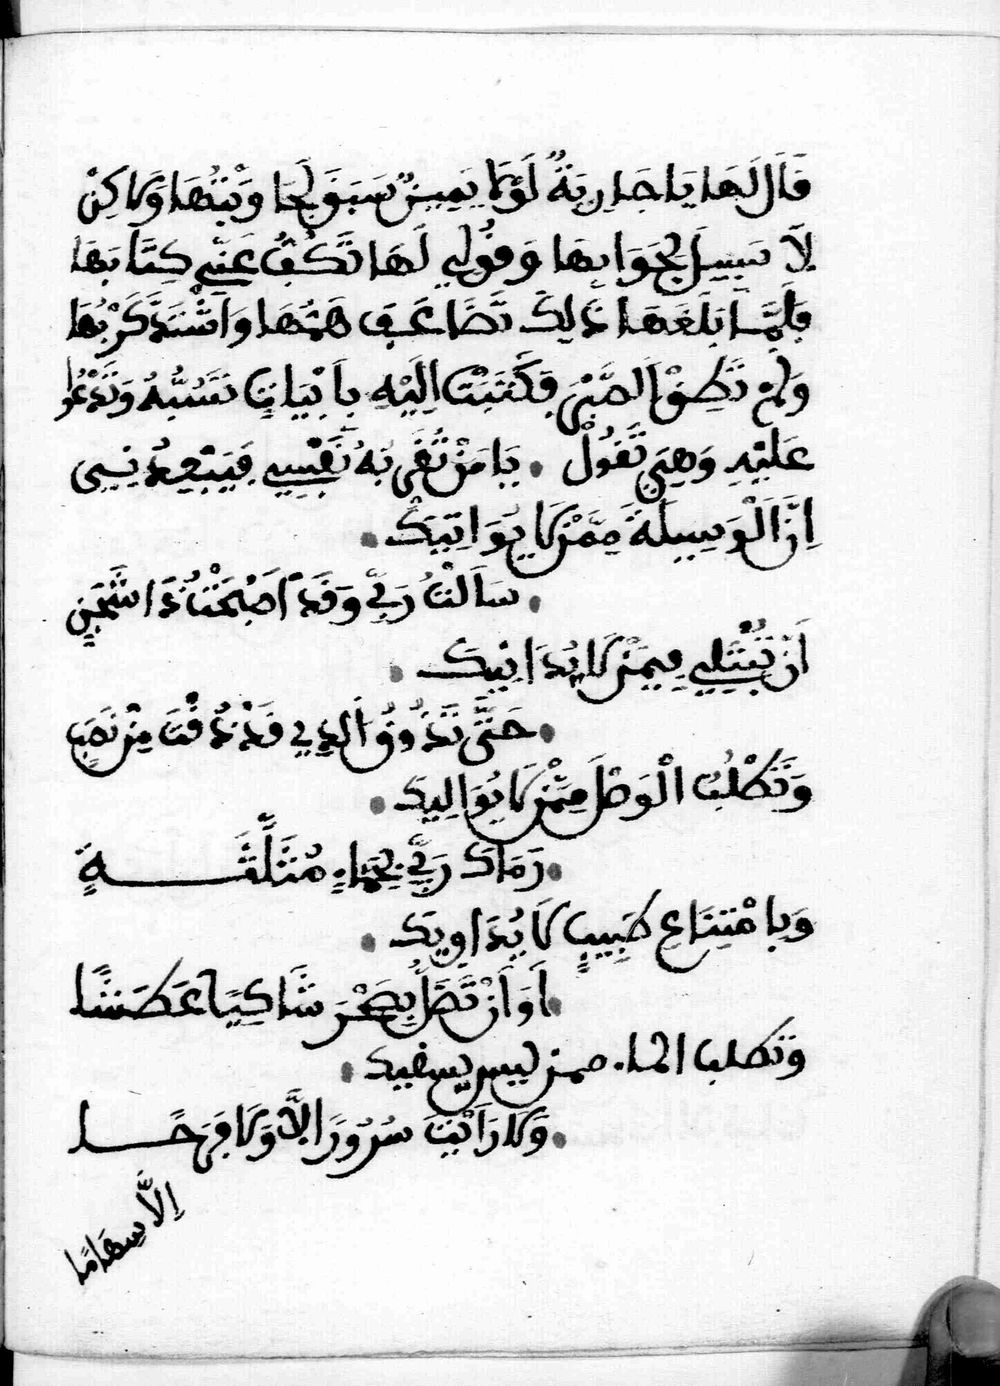 قَالَ لَهَا يَا جَارِيَةُ لَوْلَا يَمِينٌ سَبَقَ لَجَاوَبْتُهَا وَلَاكِنْ
لَا سَبِيلَ لِجَوَابِهَا وَقُولِي لَهَا تَكُفُّ عَنِّي كِتَابَهَا
فَلَمَّا بَلَغَهَا ذَلِكَ تَضَاعَفَ هَمُّهَا وَاشْتَدَّ كَرْبُهَا
وَلَمْ تُطِقْ الصَّبْرَ فَكَتَبَتْ إِلَيْهِ بِأَبْيَاتٍ تَسُبُّهُ وَتَدْعُوا
عَلَيْهِ وَهِيَ تَقُولُ . يَا مَنْ نُعَى بِهُ نَفْسِي فَيَبْعِدُنِي
اِنَّ الْوَسِيلَةَ مِمَّنْ لَا يُوَاتِيكَ .
. سَأَلْتُ رَبِّي وَقَدْ اَصْبَحْتُ ذَا شَجَنٍ
اَنْ تُبْتَلِي فِيمَنْ لَا يُدَانِيكَ .
. حَتَّى تَذُوقُ اَلذِي قَدْ ذُقْتُ مِنْ نَصَبٍ
وَتَطْلُبُ الْوَصْلَ مِمَّنْ لَا يُوَالِيكَ .
. رَمَاكَ رَبِّي بِحُمَّاءٍ مُتَلِّقَةٍ
وَبِامْتِنَاعِ طَبِيبٍ لَا يُدَاوِيكَ .
. اَوَ اَنْ تَضَلَّ بِصَحْرَ شَاكِيًا عَطَشًا
وَتَطْلب الما ممن ليس يسقيك .
. وَلَا رَاَيْتَ سُرُورًا لَا وَلَا فَرَحًا
اِلَّا سِهَامًا